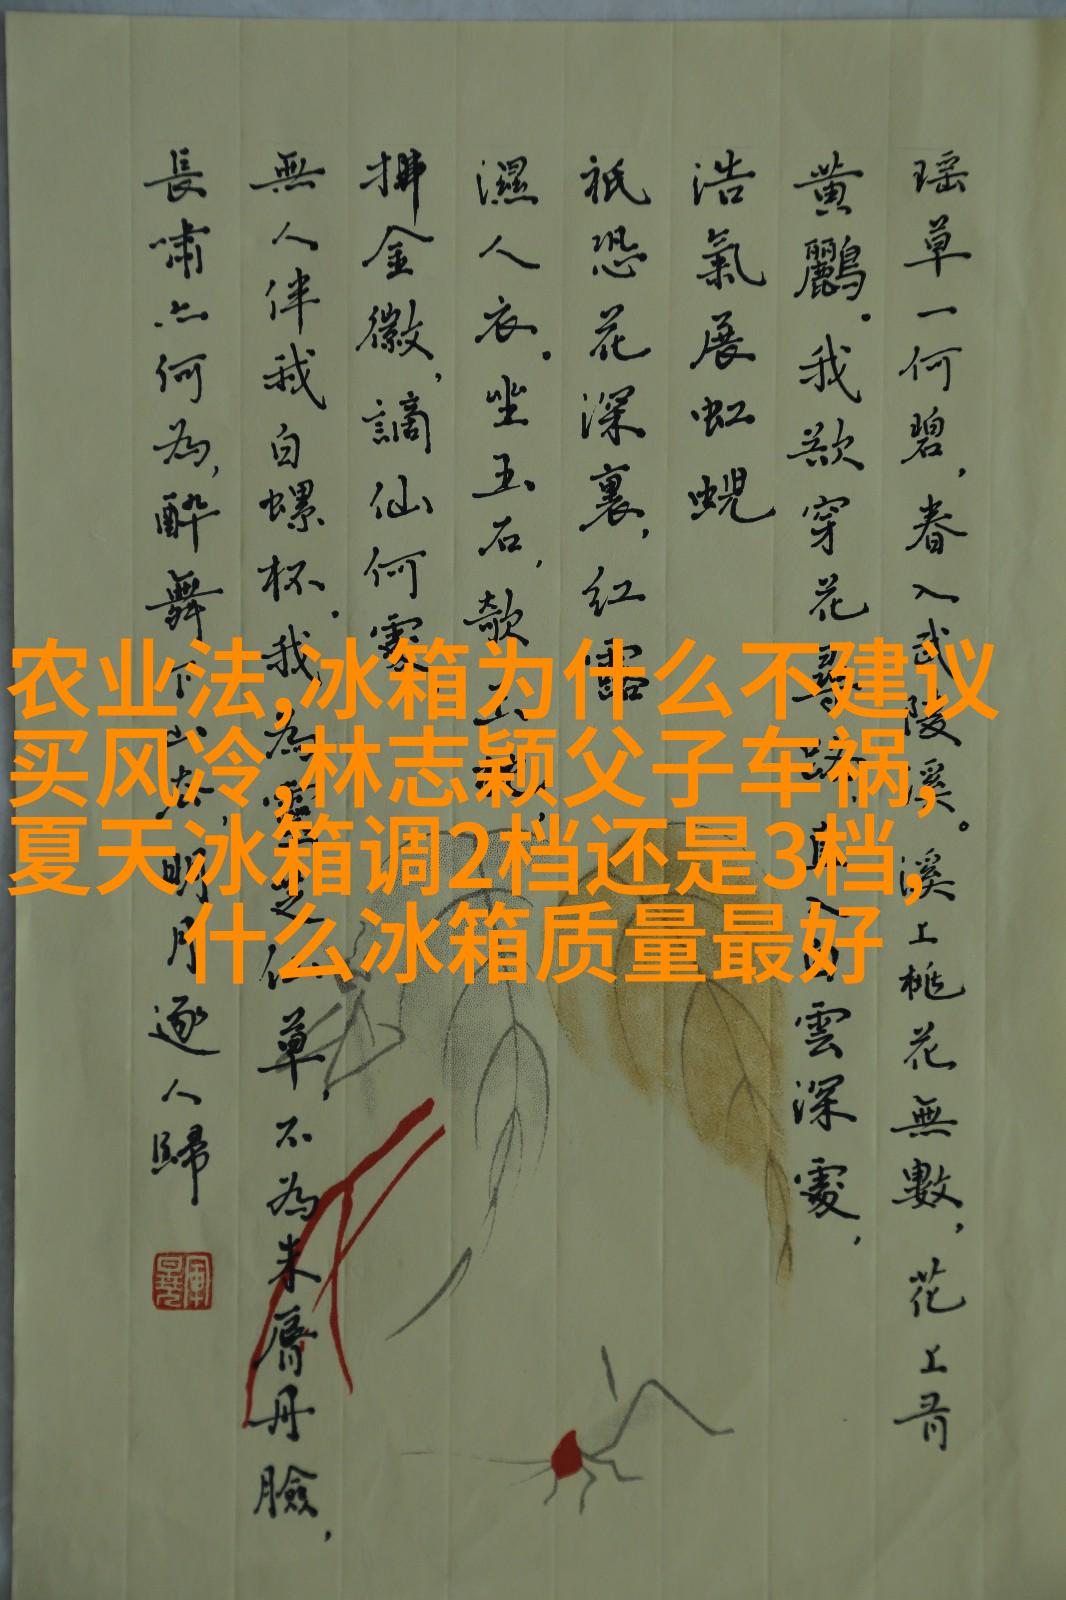 瑶草一何碧,春入武陵溪。溪上桃花無數,花上有
黄鸝。我欲穿花尋路,直入白雲深處,
浩氣展虹蜺
祇恐花深裏,紅露
濕人衣。坐玉石,欹玉枕,
拂金徽,謫仙何處
無人伴我白螺杯。我為靈芝仙草,不為朱脣丹臉,
長嘯亦何為,醉舞下山去,明月逐人歸
农业法,冰箱为什么不建议
买风冷,林志颖父子车祸,
夏天冰箱调2档还是3档,
什么冰箱质量最好